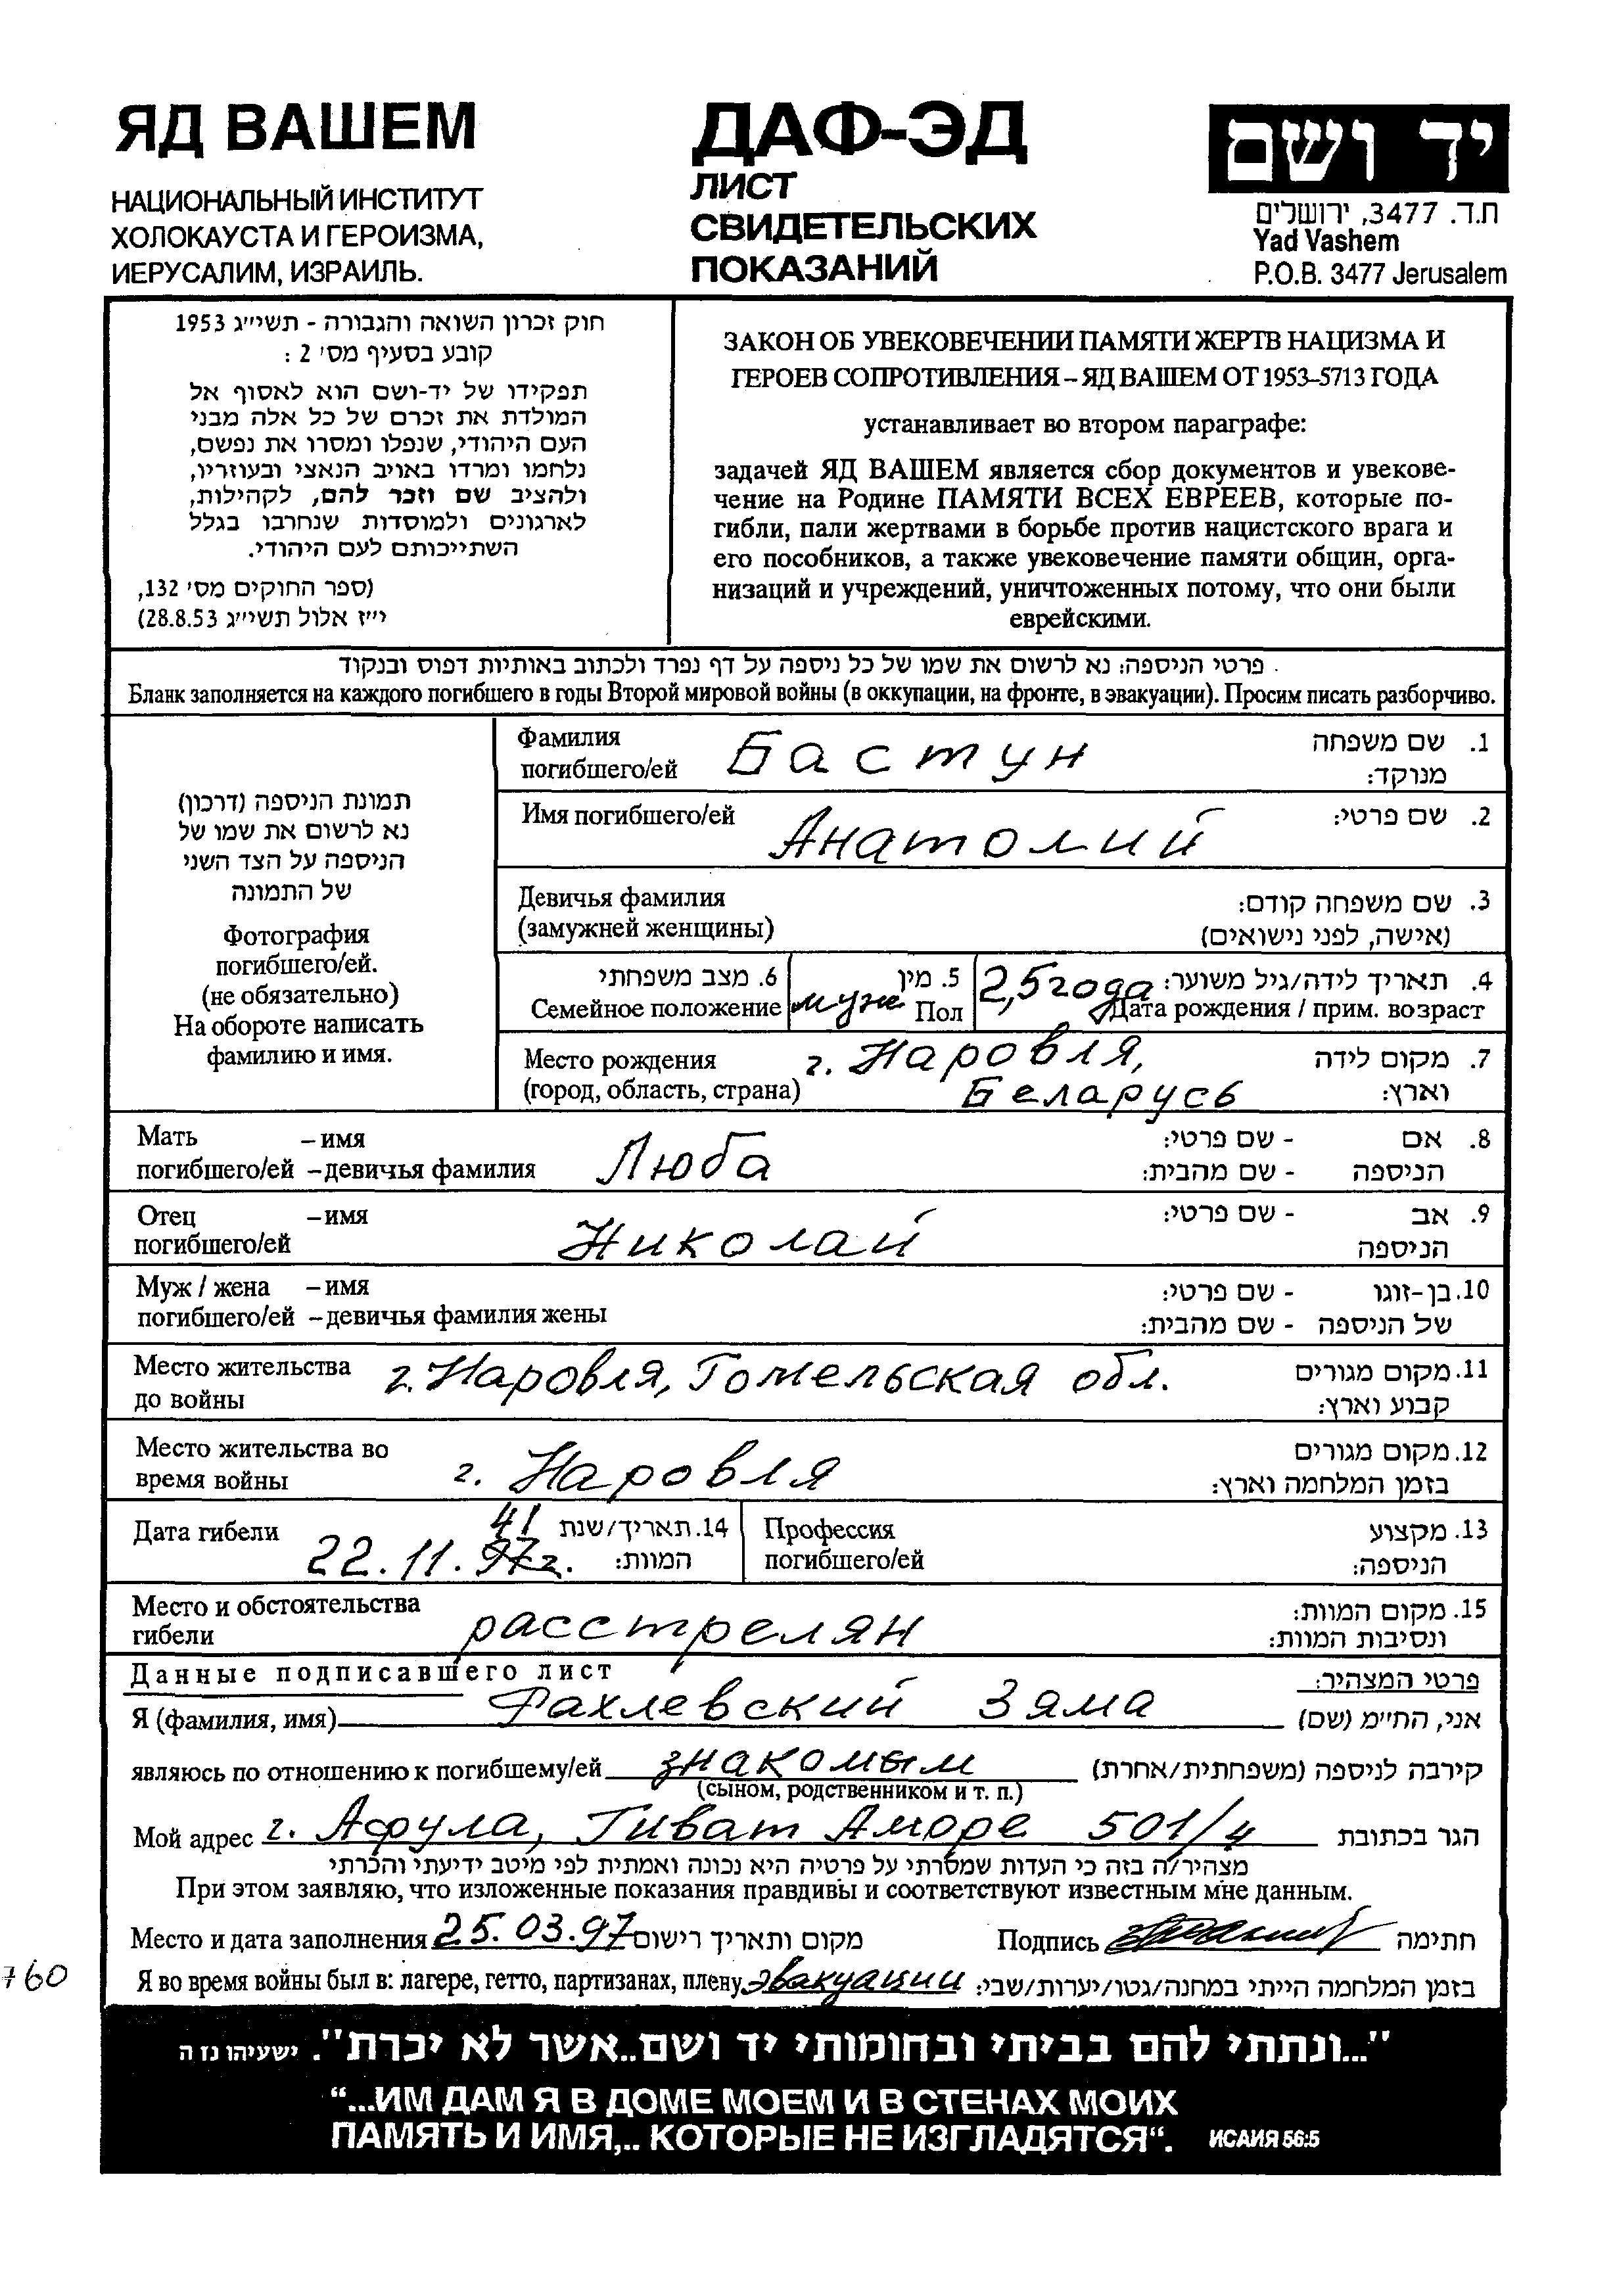 ЯД ВАШЕМ
НАЦИОНАЛЬНЫЙ ИНСТИТУТ
ХОЛОКАУСТА И ГЕРОИЗМА,
ИЕРУСАЛИМ, ИЗРАИЛЬ.
ДАФ-ЭД
ЛИСТ
СВИДЕТЕЛЬСКИХ
ПОКАЗАНИЙ
יד ושם
ת.ד. 3477, ירושלים
Yad Vashem
P.O.B. 3477 Jerusalem
חוק זכרון השואה והגבורה - תשי״ג 1953
קובע בסעיף מס׳ 2 :
תפקידו של יד-ושם הוא לאסוף אל
המולדת את זכרם של כל אלה מבני
העם היהודי, שנפלו ומסרו את נפשם,
נלחמו ומרדו באויב הנאצי ובעוזריו,
ולהציב שם וזכר להם, לקהילות,
לארגונים ולמוסדות שנחרבו בגלל
השתייכותם לעם היהודי.
(ספר החוקים מס׳ 132,
י״ז אלול תשי״ג 28.8.53)
ЗАКОН ОБ УВЕКОВЕЧЕНИИ ПАМЯТИ ЖЕРТВ НАЦИЗМА И
ГЕРОЕВ СОПРОТИВЛЕНИЯ – ЯД ВАШЕМ ОТ 1953–5713 ГОДА
устанавливает во втором параграфе:
задачей ЯД ВАШЕМ является сбор документов и увекове-
чение на Родине ПАМЯТИ ВСЕХ ЕВРЕЕВ, которые по-
гибли, пали жертвами в борьбе против нацистского врага и
его пособников, а также увековечение памяти общин, орга-
низаций и учреждений, уничтоженных потому, что они были
еврейскими.
פרטי הניספה: נא לרשום את שמו של כל ניספה על דף נפרד ולכתוב באותיות דפוס ובנקוד
Бланк заполняется на каждого погибшего в годы Второй мировой войны (в оккупации, на фронте, в эвакуации). Просим писать разборчиво.
תמונת הניספה (דרכון)
נא לרשום את שמו של
הניספה על הצד השני
של התמונה
Фотография
погибшего/ей.
(не обязательно)
На обороте написать
фамилию и имя.
Фамилия
погибшего/ей Бастун
1. שם משפחה
מנוקד:
Имя погибшего/ей Анатолий
2. שם פרטי:
Девичья фамилия
(замужней женщины)
3. שם משפחה קודם:
(אישה, לפני נישואים)
6. מצב משפחתי
Семейное положение
5. מין
муж Пол
4. תאריך לידה/גיל משוער: 2,5 года
Дата рождения / прим. возраст
Место рождения
(город, область, страна)
г. Наровля,
Беларусь
7. מקום לידה
וארץ:
Мать – имя
погибшего/ей – девичья фамилия
Люба
8. אם - שם פרטי:
הניספה - שם מהבית:
Отец – имя
погибшего/ей
Николай
9. אב - שם פרטי:
הניספה
Муж / жена – имя
погибшего/ей – девичья фамилия жены
10. בן-זוגו - שם פרטי:
של הניספה - שם מהבית:
Место жительства
до войны
г. Наровля, Гомельская обл.
11. מקום מגורים
קבוע וארץ:
Место жительства во
время войны
г. Наровля
12. מקום מגורים
בזמן המלחמה וארץ:
Дата гибели
41
22.11.97г.
14. תאריך/שנת
המוות:
Профессия
погибшего/ей
13. מקצוע
הניספה:
Место и обстоятельства
гибели
расстрелян
15. מקום המוות:
ונסיבות המוות:
Данные подписавшего лист
פרטי המצהיר:
Я (фамилия, имя) Фахлевский Зяма אני, הח״מ (שם)
являюсь по отношению к погибшему/ей знакомым קירבה לניספה (משפחתית/אחרת)
(сыном, родственником и т. п.)
Мой адрес г. Афула, Гиват Аморе 501/4 הגר בכתובת
מצהיר/ה בזה כי העדות שמסרתי על פרטיה היא נכונה ואמתית לפי מיטב ידיעתי והכרתי
При этом заявляю, что изложенные показания правдивы и соответствуют известным мне данным.
Место и дата заполнения 25.03.97 מקום ותאריך רישום Подпись חתימה
Я во время войны был в: лагере, гетто, партизанах, плену, эвакуации בזמן המלחמה הייתי במחנה/גטו/יערות/שבי:
760
"...ונתתי להם בביתי ובחומותי יד ושם..אשר לא יכרת". ישעיהו נז ה
“...ИМ ДАМ Я В ДОМЕ МОЕМ И В СТЕНАХ МОИХ
ПАМЯТЬ И ИМЯ,.. КОТОРЫЕ НЕ ИЗГЛАДЯТСЯ“. ИСАИЯ 56:5